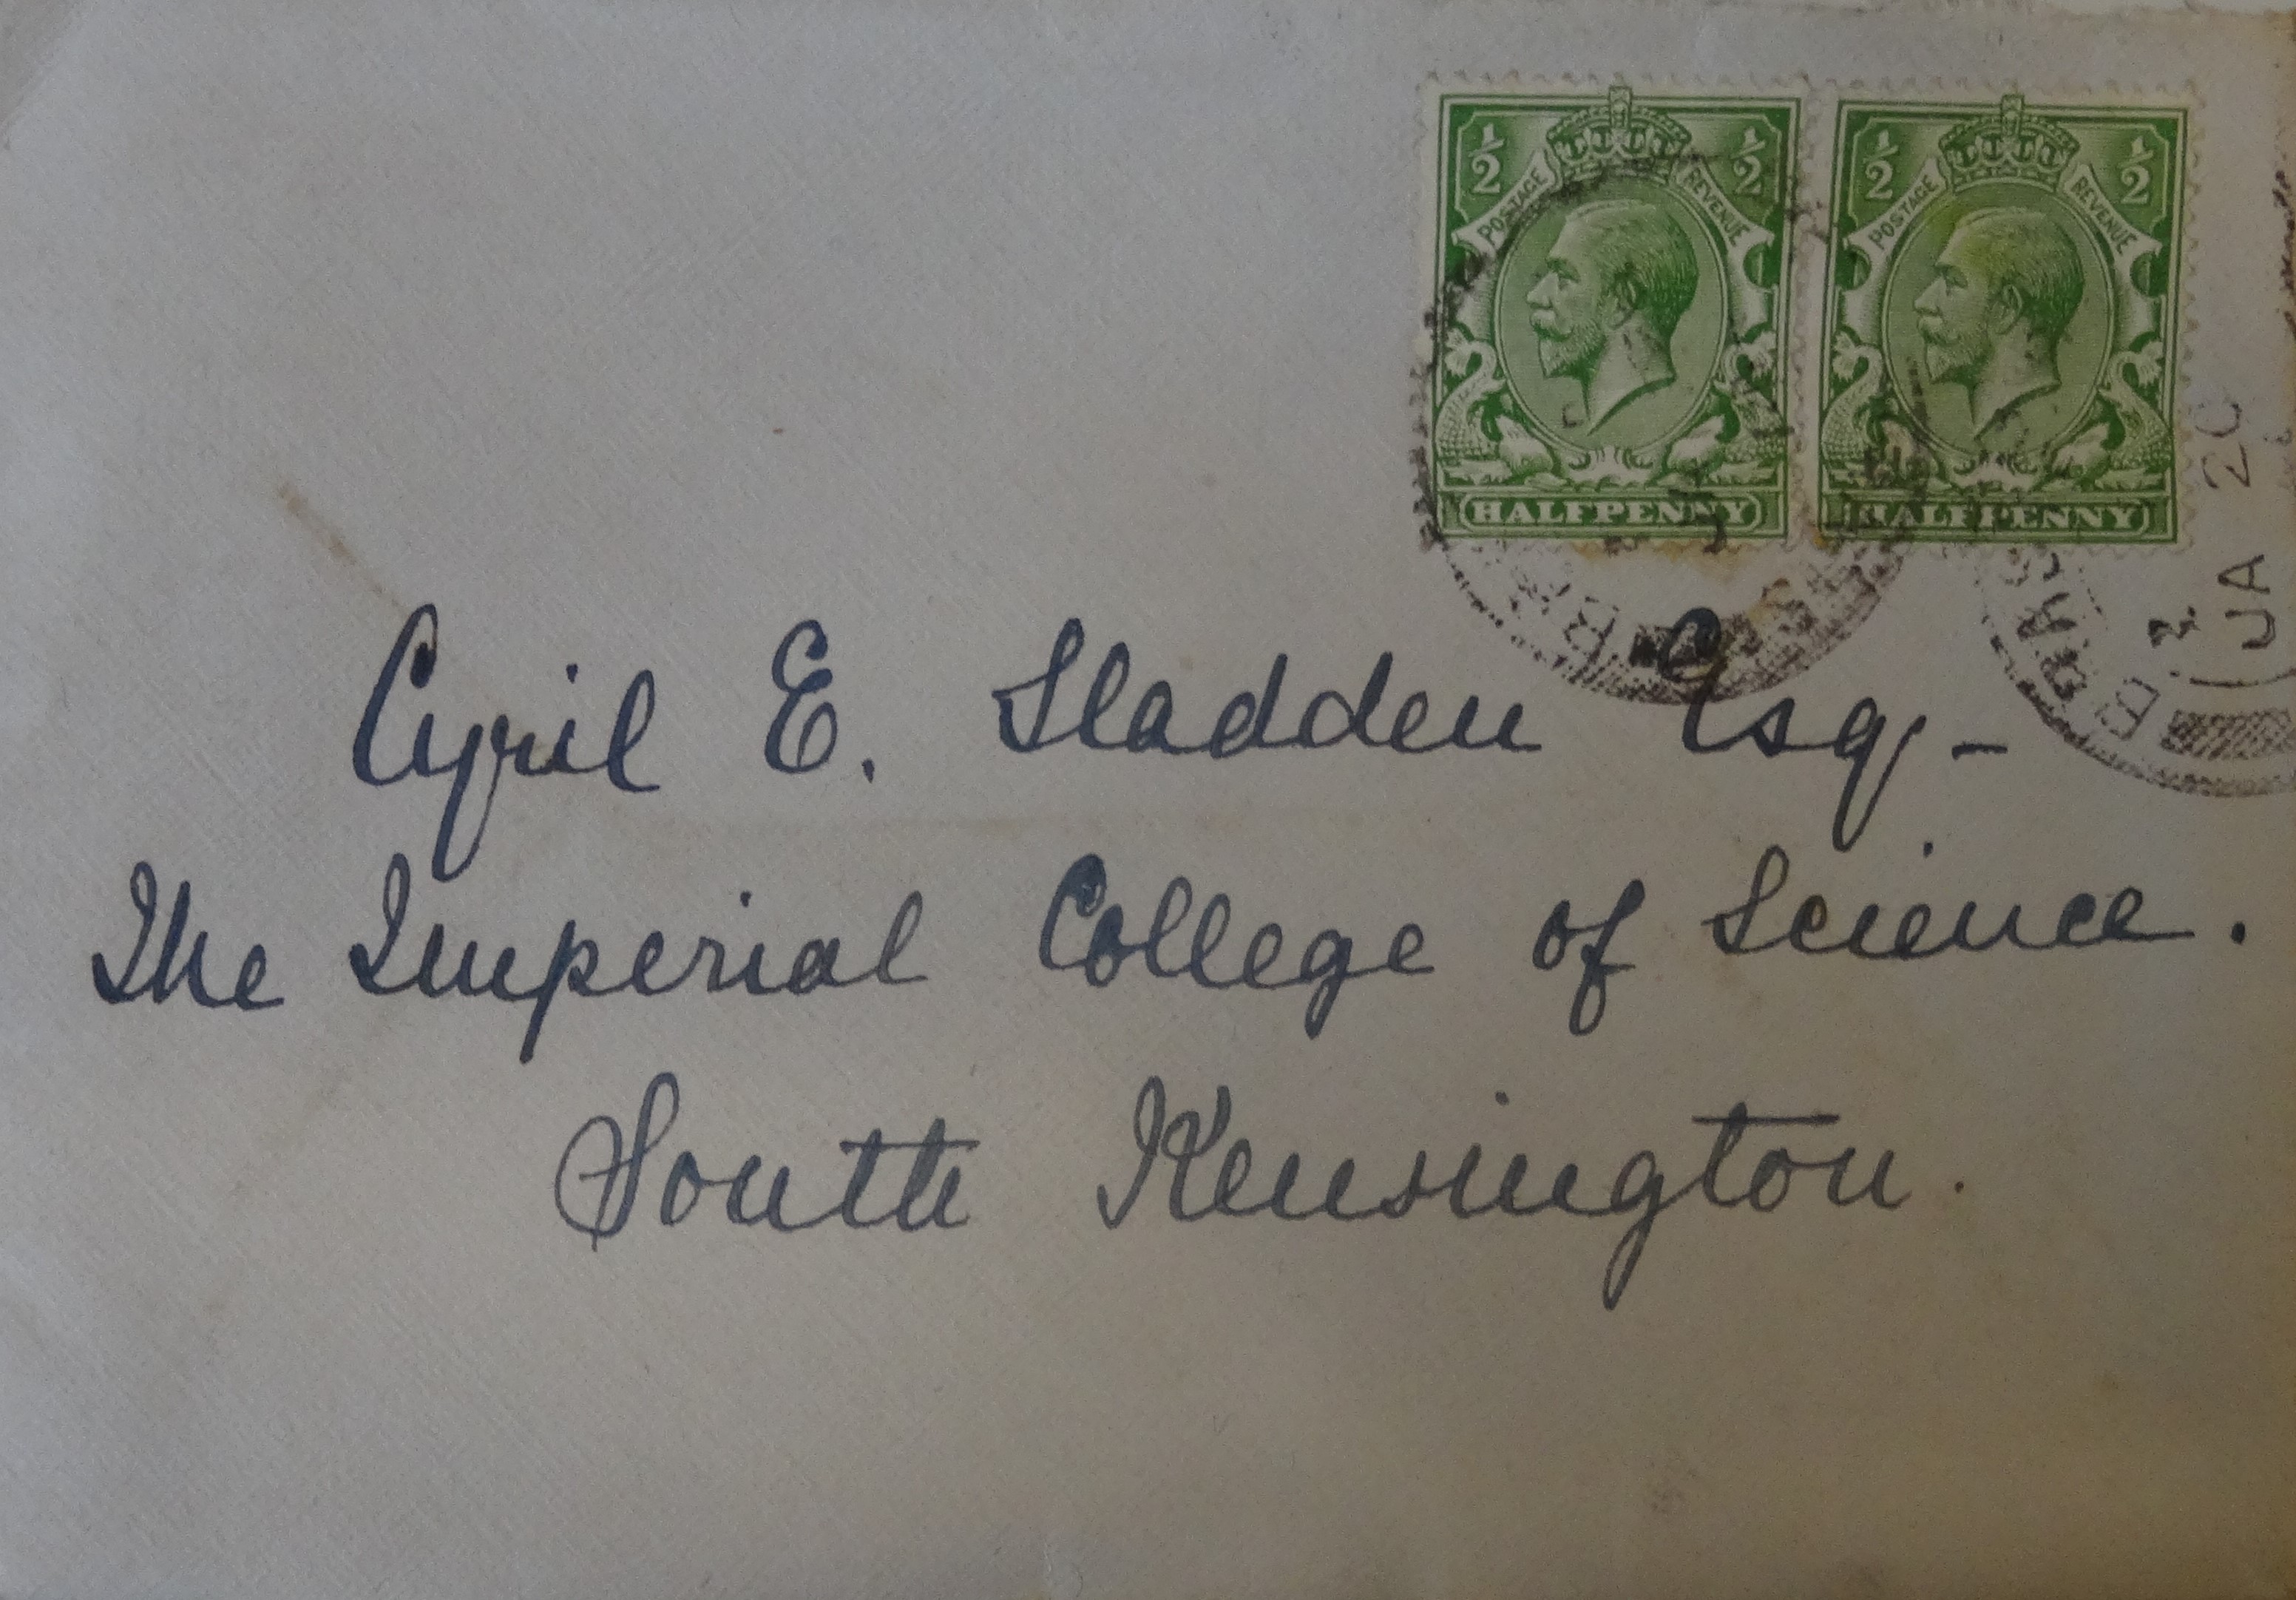 ½ POSTAGE REVENUE ½
HALFPENNY
½ POSTAGE REVENUE ½
HALFPENNY
JA 20
Cyril E. Sladden Esq -
The Imperial College of Science.
South Kensington.